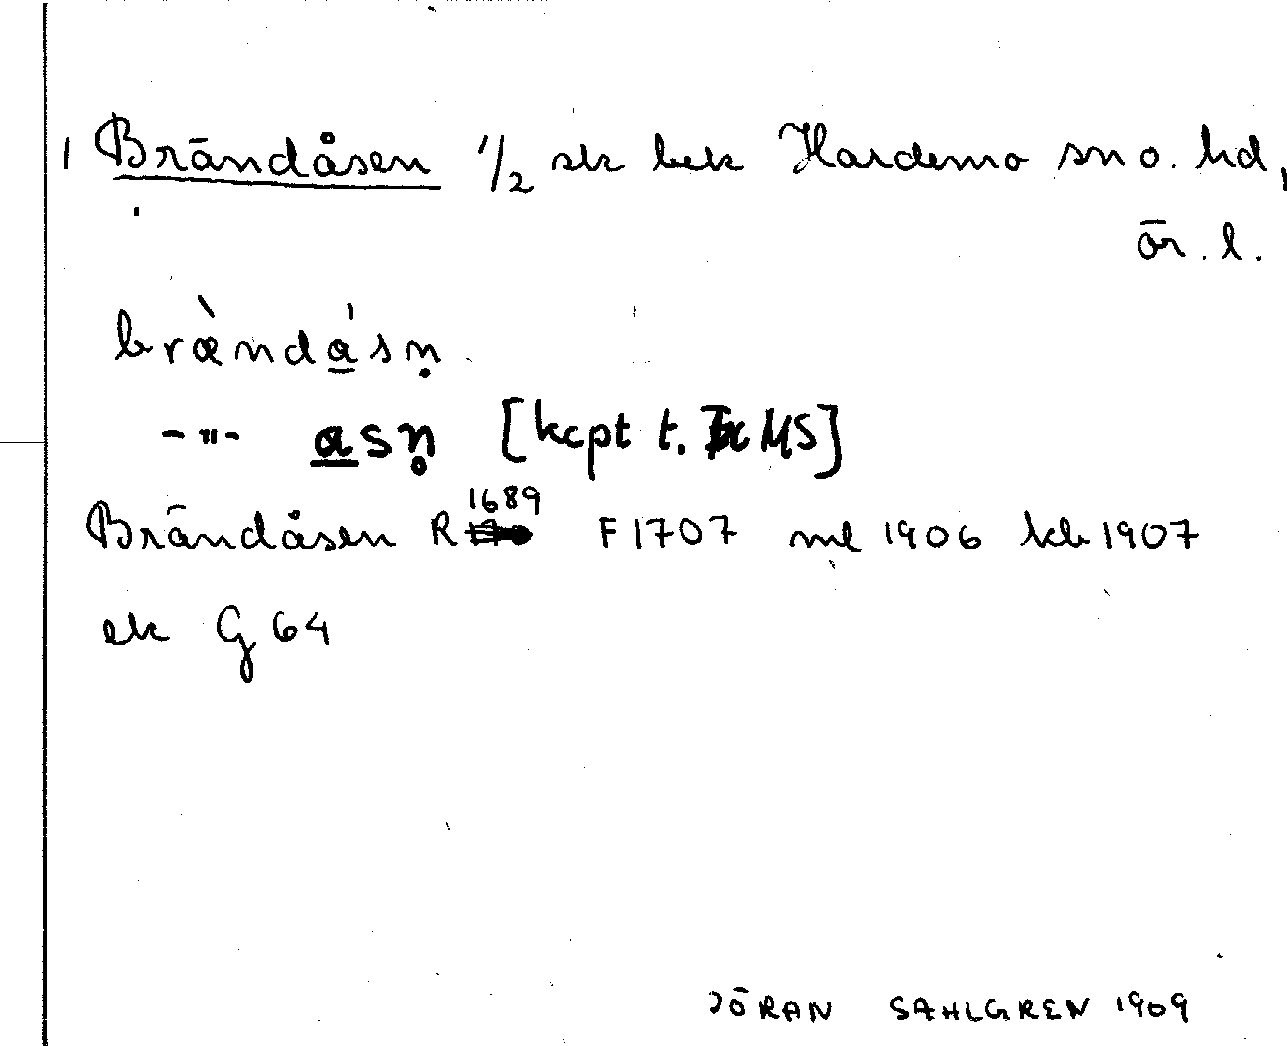 1 Brändåsen 1/2 sk bek Hardemo sn o. hd,
ör. l.
bràndásṇ
-"- asṇ [kcpt t. MS]
Brändåsen R 1689 F 1707 ml 1906 kb 1907
ek G 64
JÖRAN SAHLGREN 1909